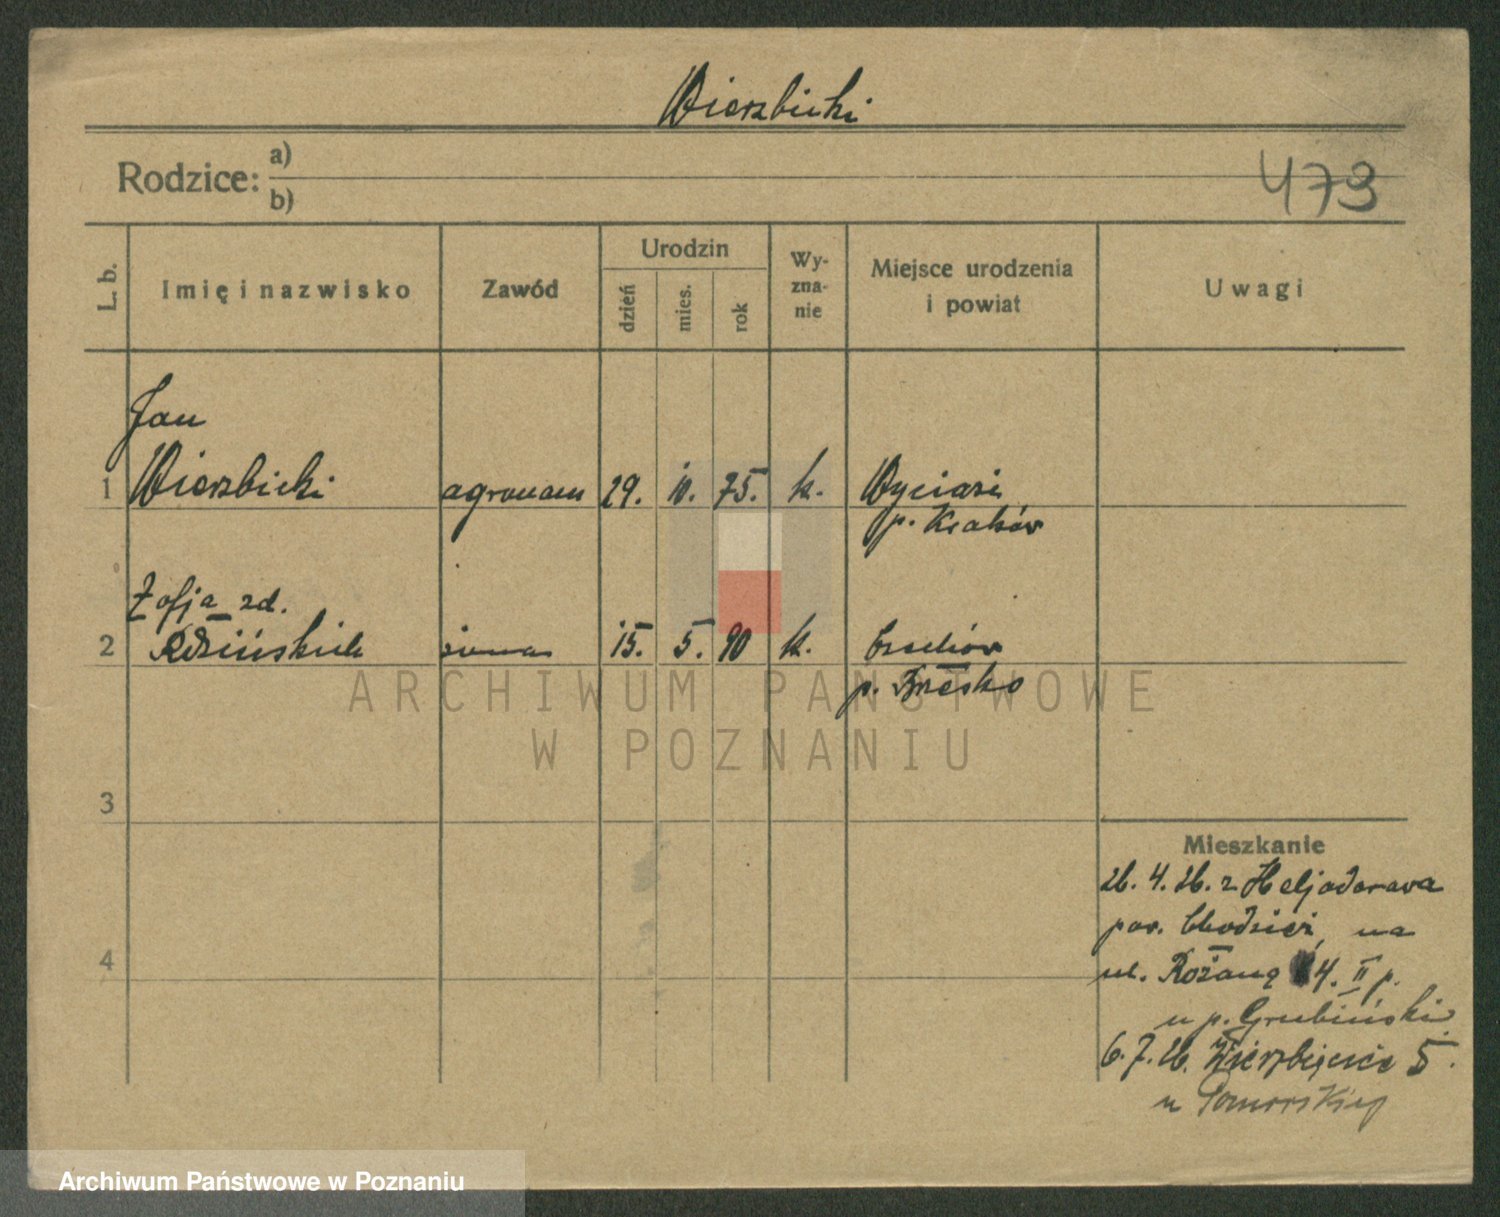 Wierzbicki
Rodzice: a)
b)
473
L. b.
Imię i nazwisko
Zawód
Urodzin
dzień
mies.
rok
Wy-
zna-
nie
Miejsce urodzenia
i powiat
Uwagi
Jan
1 Wierzbicki agronom 29. 10. 75. k. Wyciąże
p. Kraków
Zofja zd.
2 żona 15. 5. 90 k. Czchów
p. Brzesko
ARCHIWUM PAŃSTWOWE
W POZNANIU
3
4
Mieszkanie
26. 4. 26. z Heljodorowa
pow. Chodzież, na
ul. Różaną 4. II p.
u p. Grubiński
6. 7. 26. Wierzbięcice 5.
u Pomorskiej
Archiwum Państwowe w Poznaniu